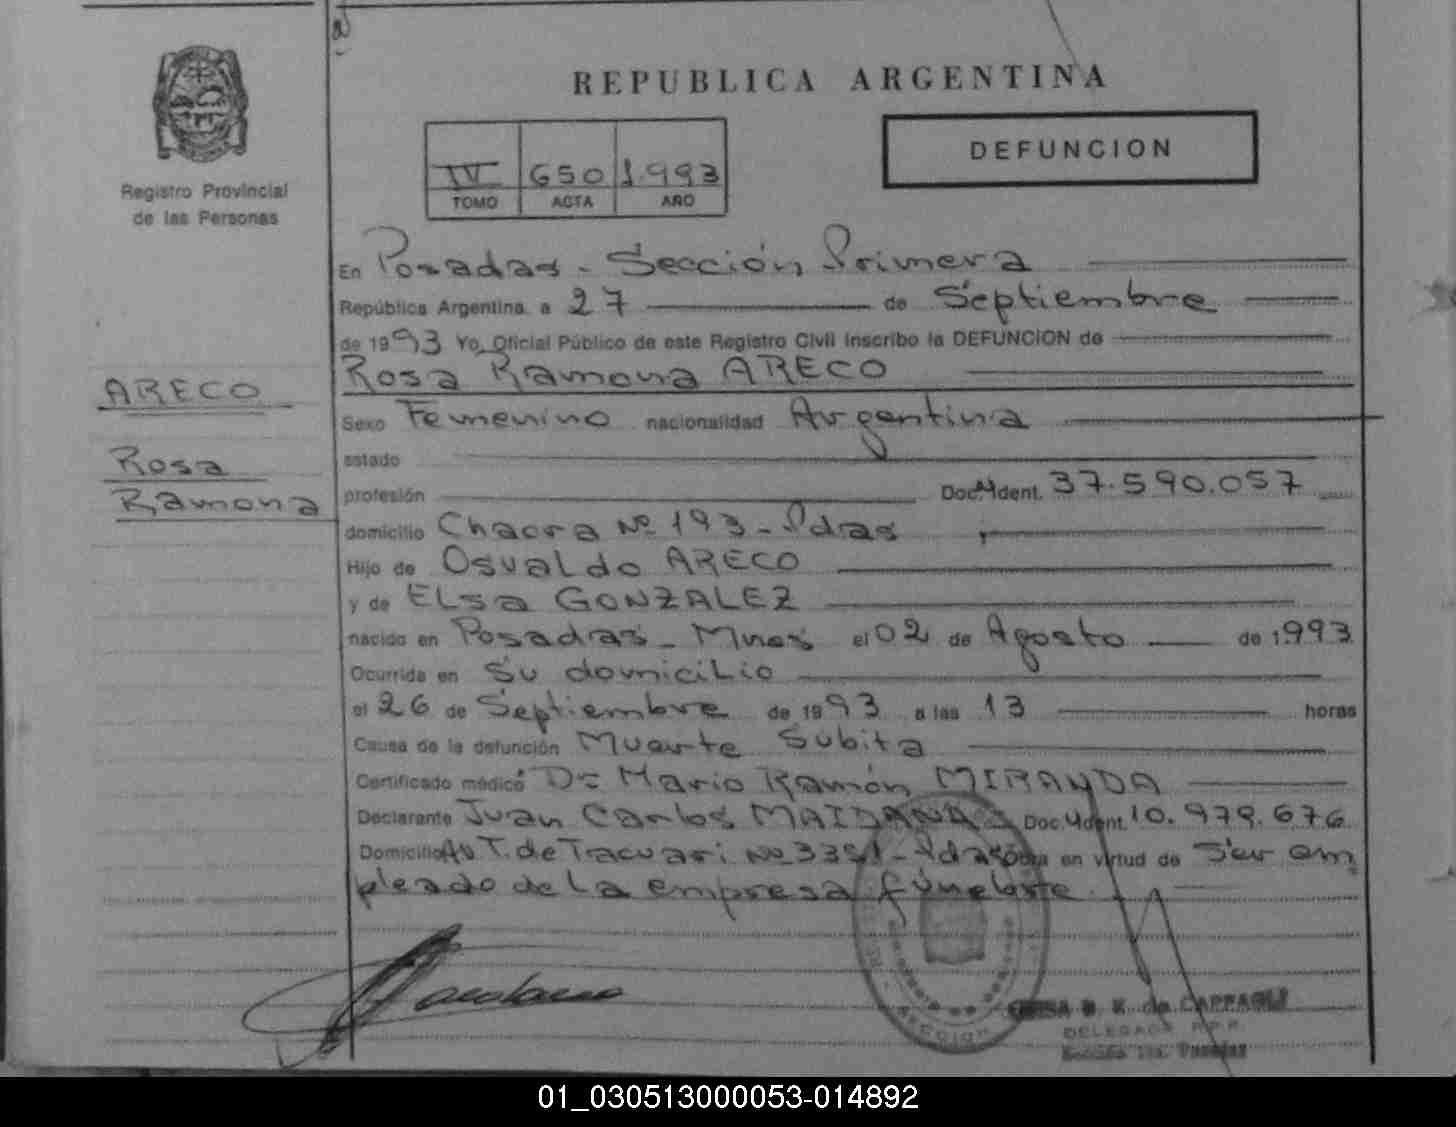 REPUBLICA ARGENTINA
DEFUNCION
IV 650 1.993
TOMO ACTA AÑO
Registro Provincial
de las Personas
ARECO
Rosa
Ramona
En Posadas - Sección Primera
República Argentina, a 27 de Septiembre
de 1993 Yo, Oficial Público de este Registro Civil inscribo la DEFUNCION de
Rosa Ramona ARECO
Sexo Femenino nacionalidad Argentina
estado
profesión Doc. Ident. 37.590.057
domicilio Chacra Nº 193 - Pdas
Hijo de Osvaldo ARECO
y de ELsa GONZALEZ
nacido en Posadas - Mnes el 02 de Agosto de 1.993
Ocurrida en Su domiciLio
el 26 de Septiembre de 1993 a las 13 horas
Causa de la defunción Muerte Subita
Certificado médico Dr Mario Ramón MIRANDA
Declarante Juan Carlos MAIDANA Doc. Ident. 10.979.676
Domicilio Av T. de Tacuari Nº - Pdas Obra en virtud de Ser em
pleado de La empresa fúnebre
SECCION
de CAPPAGLI
DELEGADA R.P.P.
Sección 1ra. Posadas
01_030513000053-014892